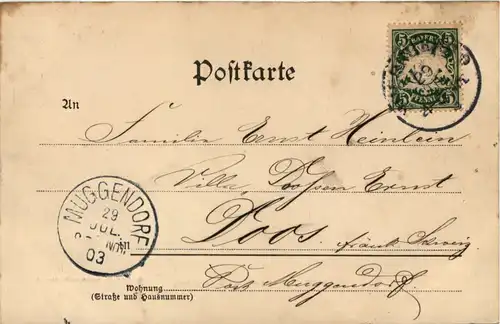 BAYERN
5 5
PFENNIG
Postkarte
An
Familie Ernst Heinlein
Villa Ernst
Doos fränk. Schweiz
in
Post Muggendorf
MUGGENDORF
29
JUL.
NM.
03
Wohnung
(Straße und Hausnummer)